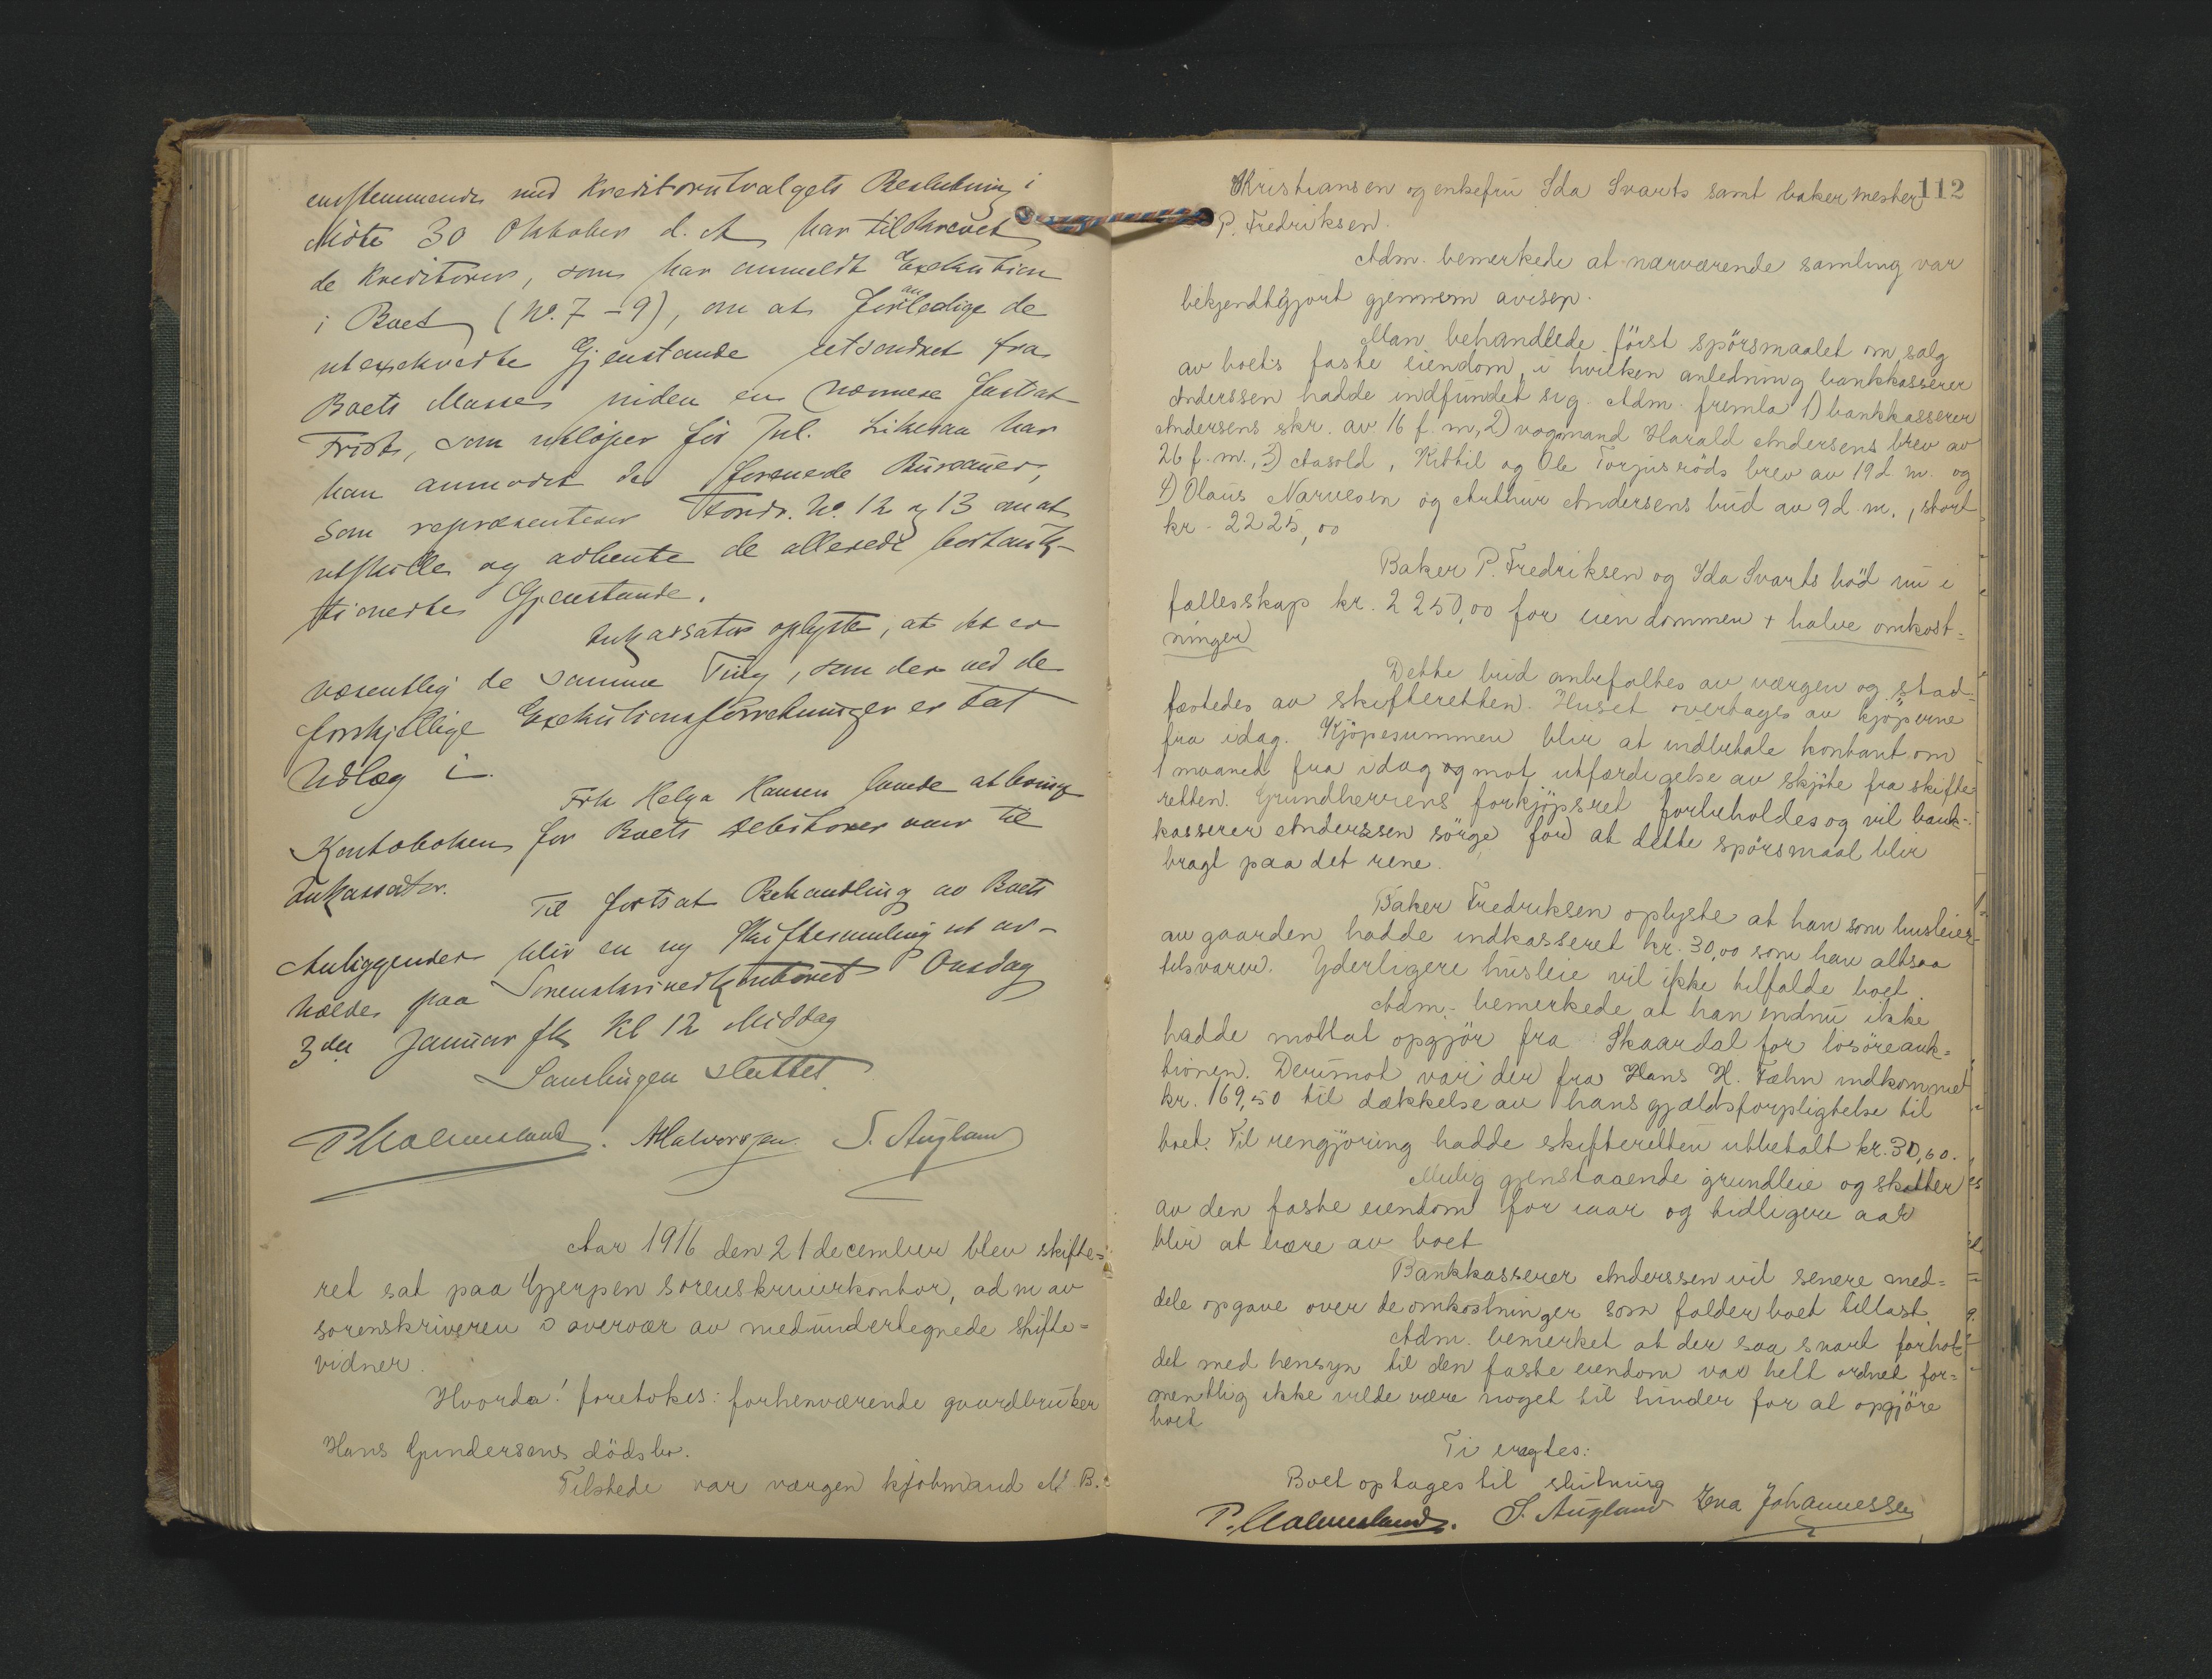 enstemmende med Kreditorutvalgets Beslutning i
Møte 30 Oktober d. A har tilskrevet
de Kreditorer, som har anmeldt Exekution
i Boet (No. 7 – 9), om at foranledige de
utexekverte Gjenstande utsondret fra
Boets Masse inden en nærmere fastsat
Frist, som utløper før Jul. Likesaa har
han anmodet de forenede Bureauer,
som repræsenterer Fordr. No. 12 og 13 om at
utskille og avhente de allerede bortauk-
tionerte Gjenstande.
Inkassator oplyste, at det er
væsentlig de samme Ting, som der ved de
forskjellige Exekutionsforretninger er tat
Utlæg i.
Frk Helga Hansen lovede at bringe
Kontoboken for Boets Debitorer over til
Inkassator.
Til fortsat Behandling av Boets
Anliggender blir en ny Skiftesamling at av-
holde paa Sorenskriverkontoret Onsdag
3die Januar fk Kl 12 Middag
Samlingen sluttet.
P. Malmesland. AHalvorsen. S. Augland
Aar 1916 den 21 december blev skifte=
ret sat paa Gjerpen sorenskriverkontor, adm av
sorenskriveren i overvær av medundertegnede skifte=
vidner.
Hvorda! foretokes: forhenværende gaardbruker
Hans Gundersens dödsbo.
Tilstede var værgen kjøbmand M. B.
112
Kristiansen og enkefru Ida Svarts samt bakermester
P. Fredriksen.
Adm. bemerkede at nærværende samling var
bekjendtgjort gjennem avisen.
Man behandlede först spörsmaalet om salg
av boets faste eiendom, i hvilken anledning bankkasserer
Anderssen hadde indfundet sig. Adm. fremla 1) bankkasserer
Andersens skr. av 16 f. m, 2) vognmand Harald Andersens brev av
26 f. m., 3) Aasold, Kittil og Ole Torjusröds brev av 19 d. m. og
4) Olaus Narvesen og Arthur Andersens bud av 9 d. m., stort
kr. 2225,00
Baker P. Fredriksen og Ida Svarts böd nu i
fællesskap kr. 2250,00 for eiendommen + halve omkost=
ninger
Dette bud anbefaltes av værgen og stad=
fæstedes av skifteretten. Huset overtages av kjöperne
fra idag. Kjöpesummen blir at indbetale kontant om
1 maaned fra idag og mot utfærdigelse av skjöte fra skifte
retten. Grundherrens forkjöpsret forbeholdes og vil bank=
kasserer Anderssen sörge for at dette spörsmaal blir
bragt paa det rene.
Baker Fredriksen oplyste at han som husleier
av gaarden hadde indkasseret kr. 30,00 som han altsaa
tilsvarer. Yderligere husleie vil ikke tilfalde boet.
Adm. bemerkede at han endnu ikke
hadde mottat opgjör fra Skaardal for lösöreauk=
tionen. Derimot var der fra Hans H. Fæhn indkommet
kr. 169,50 til dækkelse av hans gjældsforpligtelse til
boet. Til rengjöring hadde skifteretten utbetalt kr. 30,60.
Mulig gjenstaaende grundleie og skatter
av den faste eiendom for iaar og tidligere aar
blir at bære av boet
Bankkasserer Anderssen vil senere med=
dele opgave over de omkostninger som falder boet tillast.
Adm. bemerket at der saa snart forhol
det med hensyn til den faste eiendom var helt ordnet for=
mentlig ikke vilde være noget til hinder for at opgjöre
boet
Ti eragtes:
Boet optages til slutning
P. Malmesland. S. Augland Ena Johannessen